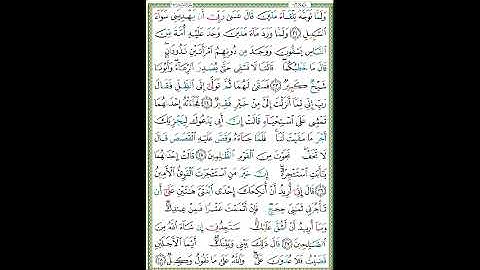 وَلَمَّا تَوَجَّهَ تِلْقَاءَ مَدْيَنَ قَالَ عَسَىٰ رَبِّي أَن يَهْدِيَنِي سَوَاءَ
السَّبِيلِ ﴿٢٢﴾ وَلَمَّا وَرَدَ مَاءَ مَدْيَنَ وَجَدَ عَلَيْهِ أُمَّةً مِّنَ
النَّاسِ يَسْقُونَ وَوَجَدَ مِن دُونِهِمُ امْرَأَتَيْنِ تَذُودَانِ
قَالَ مَا خَطْبُكُمَا قَالَتَا لَا نَسْقِي حَتَّىٰ يُصْدِرَ الرِّعَاءُ وَأَبُونَا
شَيْخٌ كَبِيرٌ ﴿٢٣﴾ فَسَقَىٰ لَهُمَا ثُمَّ تَوَلَّىٰ إِلَى الظِّلِّ فَقَالَ
رَبِّ إِنِّي لِمَا أَنزَلْتَ إِلَيَّ مِنْ خَيْرٍ فَقِيرٌ ﴿٢٤﴾ فَجَاءَتْهُ إِحْدَاهُمَا
تَمْشِي عَلَى اسْتِحْيَاءٍ قَالَتْ إِنَّ أَبِي يَدْعُوكَ لِيَجْزِيَكَ
أَجْرَ مَا سَقَيْتَ لَنَا فَلَمَّا جَاءَهُ وَقَصَّ عَلَيْهِ الْقَصَصَ قَالَ
لَا تَخَفْ نَجَوْتَ مِنَ الْقَوْمِ الظَّالِمِينَ ﴿٢٥﴾ قَالَتْ إِحْدَاهُمَا
يَا أَبَتِ اسْتَأْجِرْهُ إِنَّ خَيْرَ مَنِ اسْتَأْجَرْتَ الْقَوِيُّ الْأَمِينُ
﴿٢٦﴾ قَالَ إِنِّي أُرِيدُ أَنْ أُنكِحَكَ إِحْدَى ابْنَتَيَّ هَاتَيْنِ عَلَىٰ أَن
تَأْجُرَنِي ثَمَانِيَ حِجَجٍ فَإِنْ أَتْمَمْتَ عَشْرًا فَمِنْ عِندِكَ
وَمَا أُرِيدُ أَنْ أَشُقَّ عَلَيْكَ سَتَجِدُنِي إِن شَاءَ اللَّهُ مِنَ
الصَّالِحِينَ ﴿٢٧﴾ قَالَ ذَٰلِكَ بَيْنِي وَبَيْنَكَ أَيَّمَا الْأَجَلَيْنِ
قَضَيْتُ فَلَا عُدْوَانَ عَلَيَّ وَاللَّهُ عَلَىٰ مَا نَقُولُ وَكِيلٌ ﴿٢٨﴾